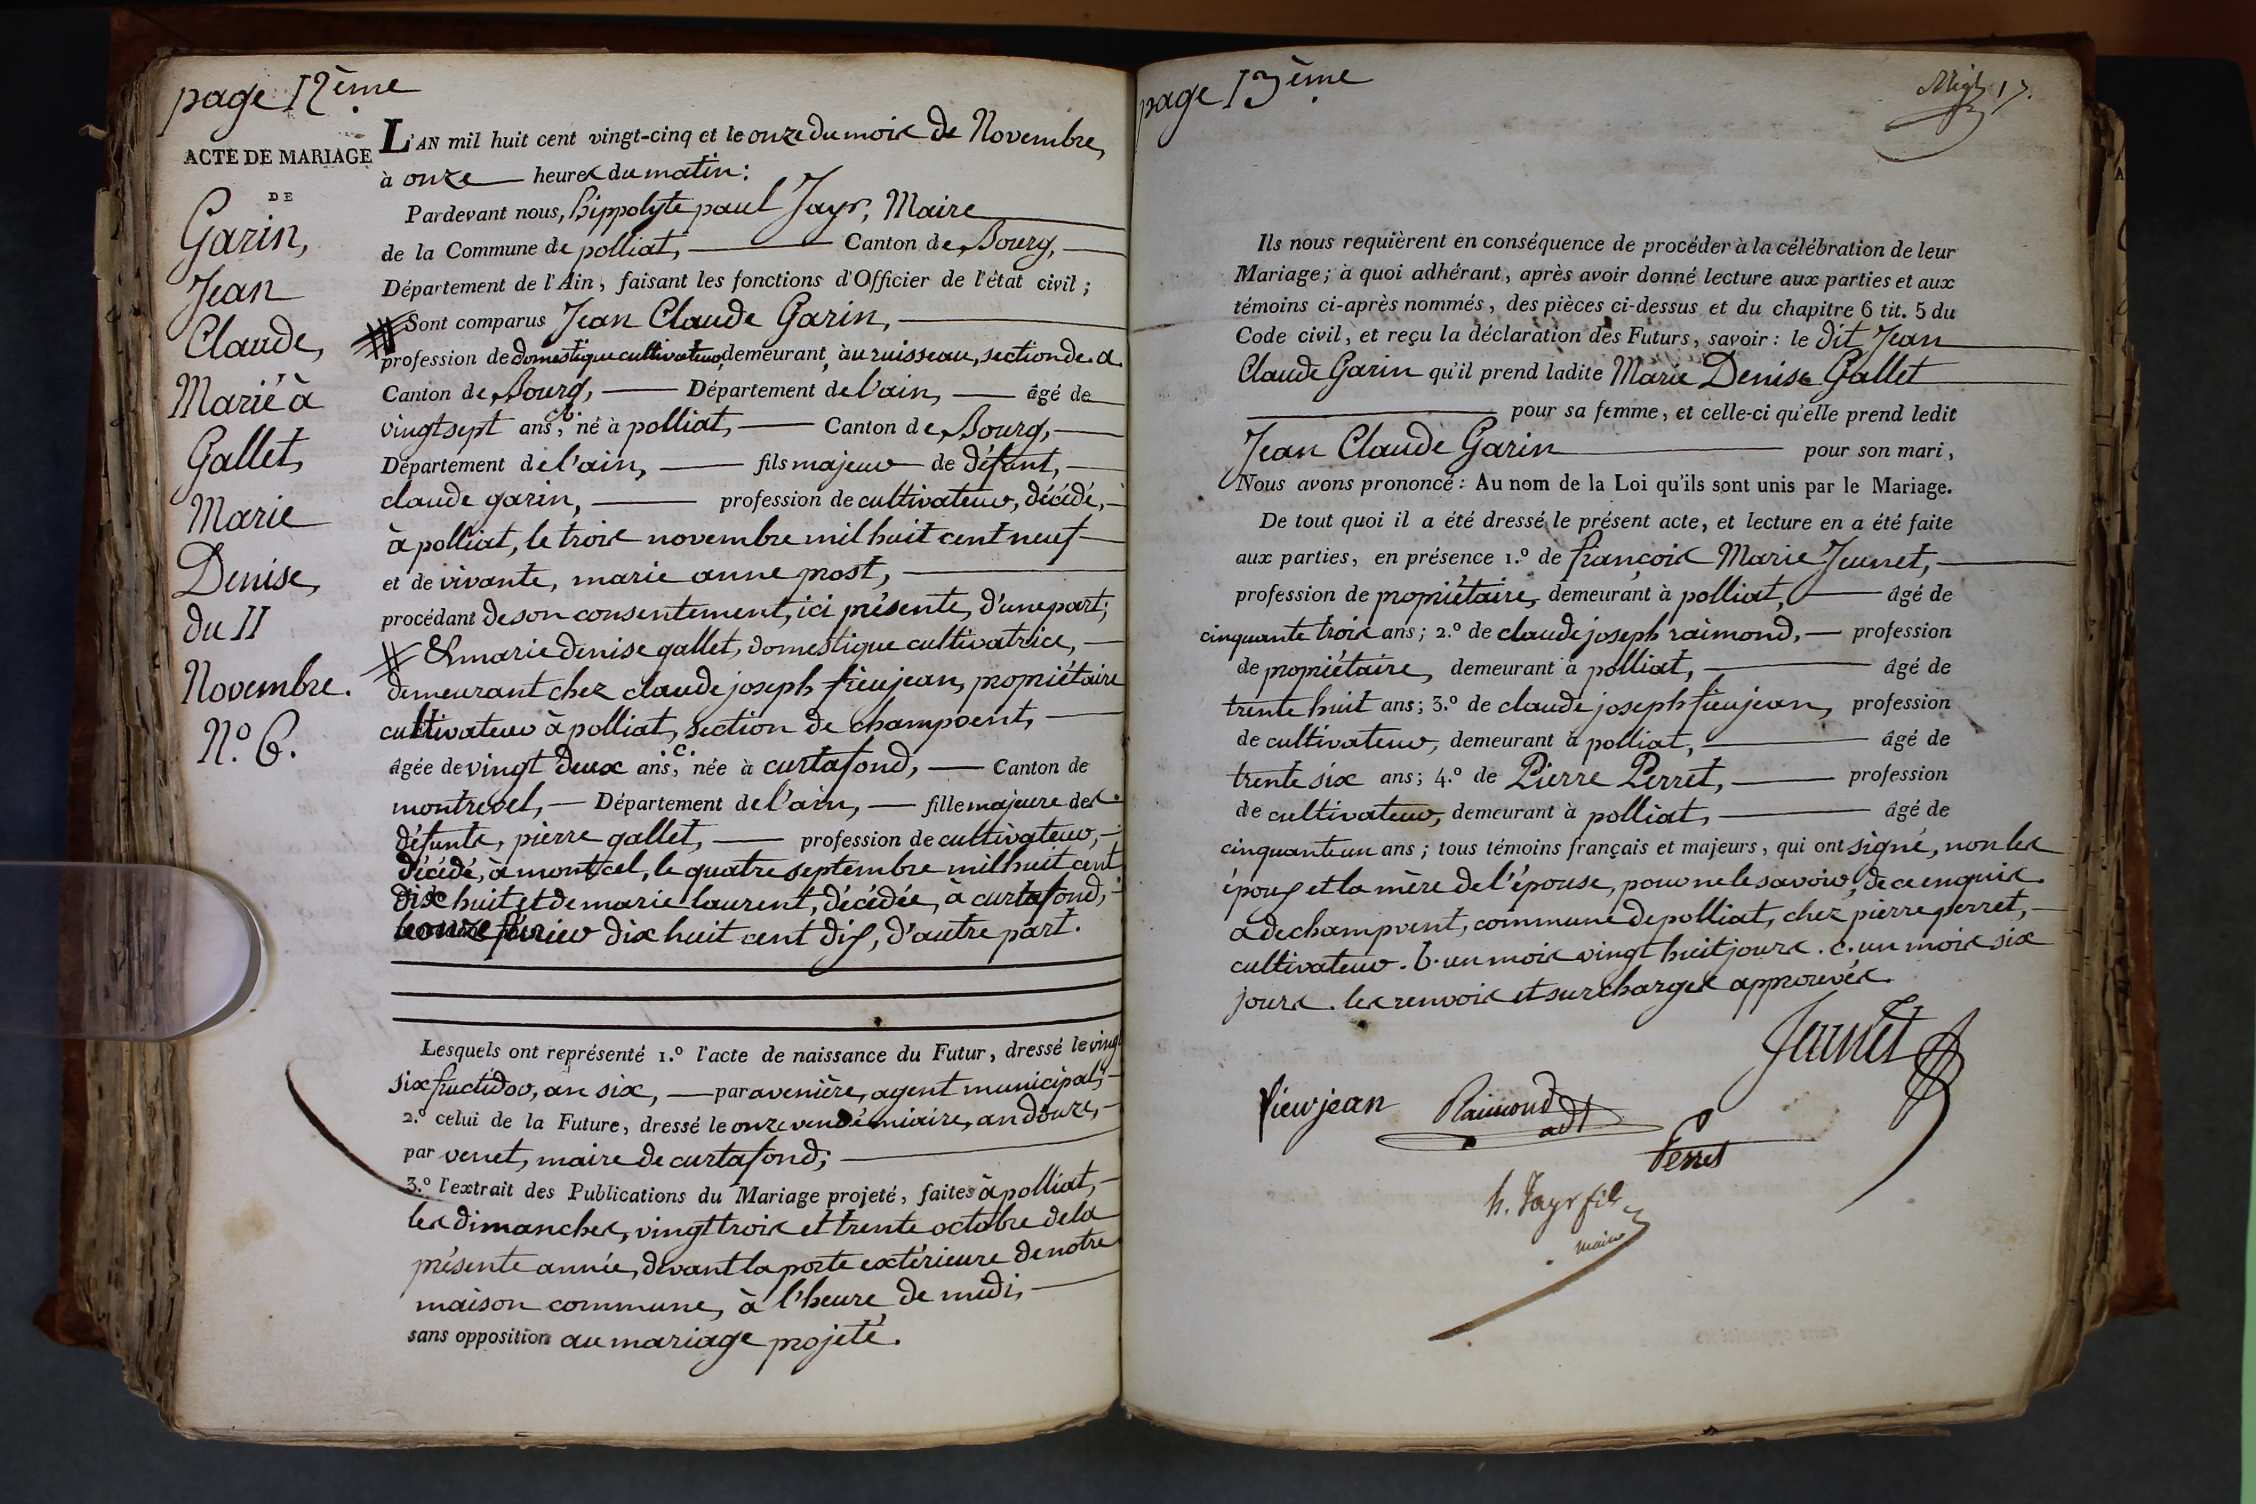 page 12ème
ACTE DE MARIAGE
DE
Garin,
Jean
Claude,
Marié à
Gallet,
Marie
Denise,
du 11
Novembre.
N.º 6.
L'AN mil huit cent vingt-cinq et le onze du mois de Novembre,
à onze heures du matin:
Pardevant nous, hippolyte paul Jayr, Maire
de la Commune de polliat, Canton de Bourg,
Département de l'Ain, faisant les fonctions d'Officier de l'état civil;
Sont comparus Jean Claude Garin,
profession de domestique cultivateur, demeurant, au ruisseau, section de a
Canton de Bourg, Département de l'ain, âgé de
vingt sept ans, b. né à polliat, Canton de Bourg,
Département de l'ain, fils majeur de défunt,
claude garin, profession de cultivateur, décédé,
à polliat, le trois novembre mil huit cent neuf
et de vivante, marie anne prost,
procédant de son consentement, ici présente, d'une part;
& marie denise gallet, domestique cultivatrice,
demeurant chez claude joseph fieujean, propriétaire
cultivateur à polliat, section de champvent,
âgée de vingt deux ans, c. née à curtafond, Canton de
montrevel, Département de l'ain, fille majeure des
défunts, pierre gallet, profession de cultivateur,
décédé, à montcel, le quatre septembre mil huit cent
dix huit et de marie laurent, décédée, à curtafond,
le onze février dix huit cent dix, d'autre part.
Lesquels ont représenté 1.º l'acte de naissance du Futur, dressé le vingt
six fructidor, an six, par avenière, agent municipal,
2.º celui de la Future, dressé le onze vendémiaire, an douze,
par venet, maire de curtafond;
3.º l'extrait des Publications du Mariage projeté, faites à polliat,
les dimanches, vingt trois et trente octobre de la
présente année, devant la porte extérieure de notre
maison commune, à l'heure de midi,
sans opposition au mariage projeté.
page 13ème
17.
Ils nous requièrent en conséquence de procéder à la célébration de leur
Mariage; à quoi adhérant, après avoir donné lecture aux parties et aux
témoins ci-après nommés, des pièces ci-dessus et du chapitre 6 tit. 5 du
Code civil, et reçu la déclaration des Futurs, savoir: le dit Jean
Claude Garin qu'il prend ladite Marie Denise Gallet
pour sa femme, et celle-ci qu'elle prend ledit
Jean Claude Garin pour son mari,
Nous avons prononcé: Au nom de la Loi qu'ils sont unis par le Mariage.
De tout quoi il a été dressé le présent acte, et lecture en a été faite
aux parties, en présence 1.º de françois Marie Jeunet,
profession de propriétaire, demeurant à polliat, âgé de
cinquante trois ans; 2.º de claude joseph raimond, profession
de propriétaire, demeurant à polliat, âgé de
trente huit ans; 3.º de claude joseph fieujean, profession
de cultivateur, demeurant à polliat, âgé de
trente six ans; 4.º de Pierre Perret, profession
de cultivateur, demeurant à polliat, âgé de
cinquante un ans; tous témoins français et majeurs, qui ont signé, non les
époux et la mère de l'épouse, pour ne le savoir, de ce enquis.
a de champvent, commune de polliat, chez pierre perret,
cultivateur. b. un mois vingt huit jours. c. un mois six
jours. les renvois et surcharges approuvés.
Jeunet
fieujean
Raimond
adt
Perret
h. Jayr fils
maire